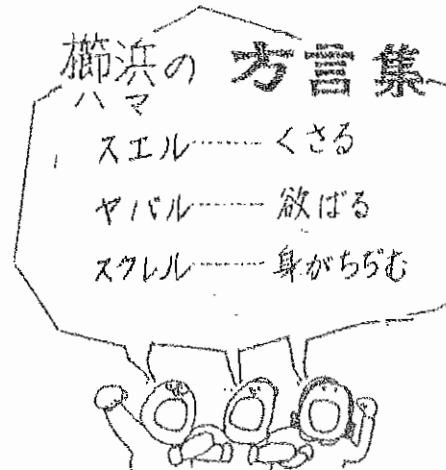 櫛浜の 方言集
ハマ
スエル……くさる
ヤバル……欲ばる
スクレル……身がちぢむ